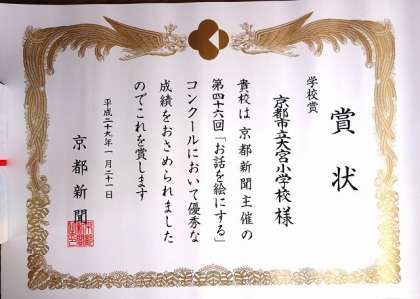 賞状
学校賞
京都市立大宮小学校 様
貴校は 京都新聞主催の
第四十六回「お話を絵にする」
コンクールにおいて優秀な
成績をおさめられました
のでこれを賞します
平成二十九年一月二十一日
京都新聞